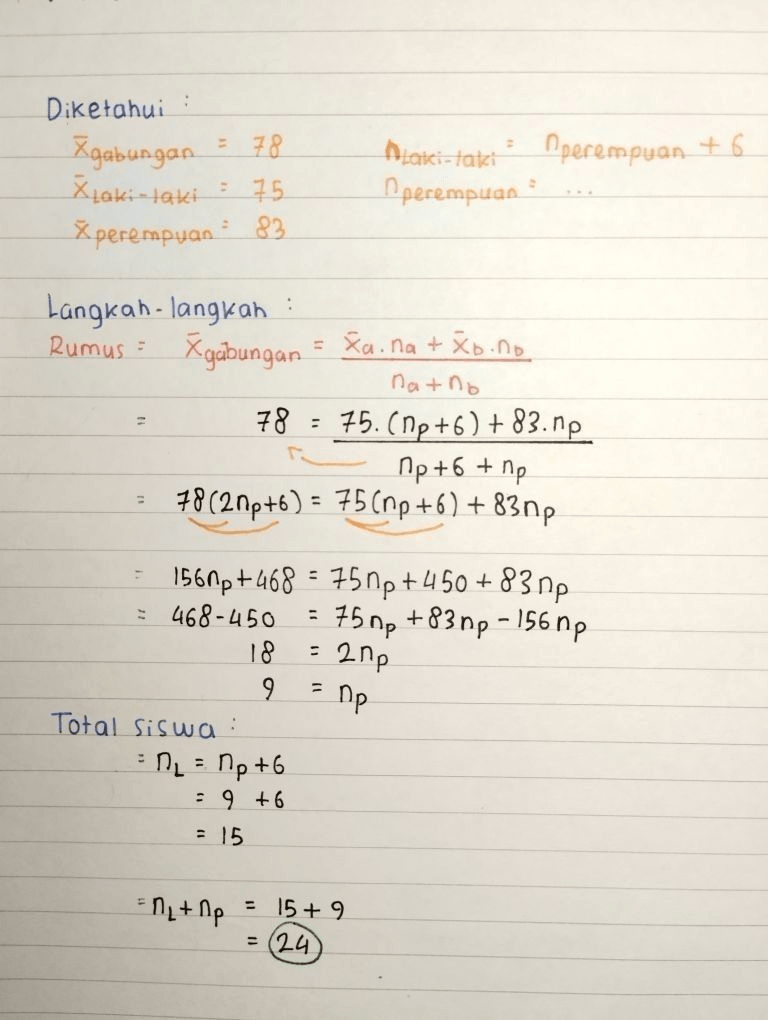 Diketahui :
x̄gabungan = 78 nLaki-laki = nperempuan + 6
x̄Laki-laki = 75 nperempuan = ...
x̄perempuan = 83
Langkah-langkah :
Rumus = x̄gabungan = x̄a.na + x̄b.nb
na + nb
= 78 = 75.(np+6) + 83.np
np+6 + np
= 78(2np+6) = 75(np+6) + 83np
= 156np+468 = 75np+450 + 83np
= 468-450 = 75np+83np-156np
18 = 2np
9 = np
Total siswa :
= nL = np+6
= 9 +6
= 15
= nL+np = 15+9
= 24